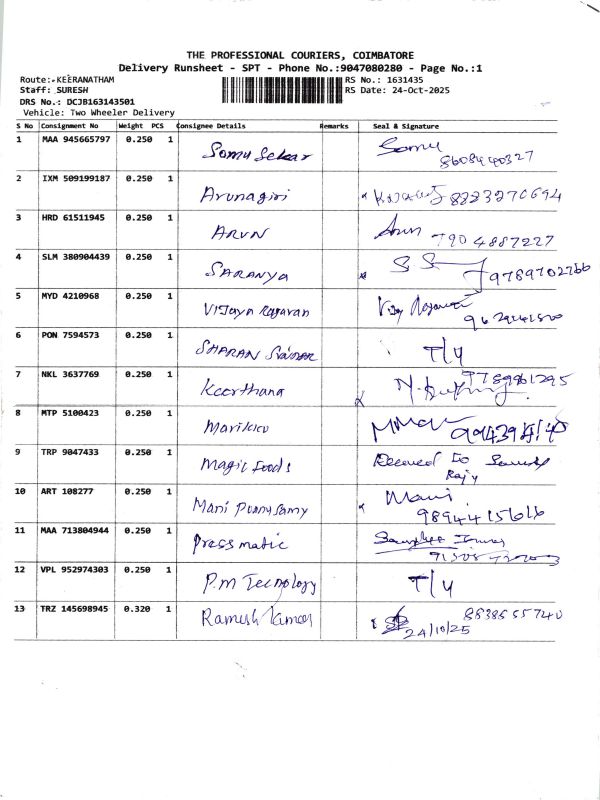 THE PROFESSIONAL COURIERS, COIMBATORE
Delivery Runsheet - SPT - Phone No.:9047080280 - Page No.:1
Route:-KEERANATHAM RS No.: 1631435
Staff: SURESH RS Date: 24-Oct-2025
DRS No.: DCJB163143501
Vehicle: Two Wheeler Delivery
S No Consignment No Weight PCS Consignee Details Remarks Seal & Signature
1 MAA 945665797 0.250 1 Somu Sekar Somu
8608440327
2 IXM 509199187 0.250 1 Arunagiri 8823270694
3 HRD 61511945 0.250 1 ARUN Arun 7904887227
4 SLM 380904439 0.250 1 SARANYA 9789702766
5 MYD 4210968 0.250 1 Vijaya Ragavan Vijay Ragavan
6 PON 7594573 0.250 1 SHARAN T/4
7 NKL 3637769 0.250 1 Keerthana 9789961295
8 MTP 5100423 0.250 1
9 TRP 9047433 0.250 1 Magic Foods
10 ART 108277 0.250 1 Mani Ponnusamy Mani
9894415616
11 MAA 713804944 0.250 1 Pressmatic
12 VPL 952974303 0.250 1 P.M Tecnology T/4
13 TRZ 145698945 0.320 1 Ramesh 8838555740
24/10/25